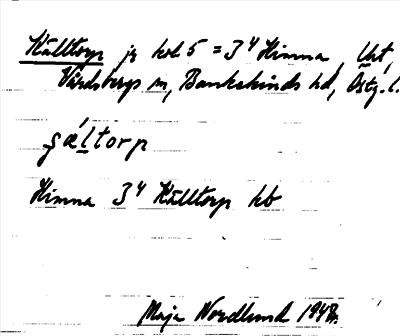 Källtorp jr kol 5 = 3⁴ Himna, Ukt,
Vårdsbergs sn, Bankekinds hd, Östg. l.
gáltorp
Himna 3⁴ Källtorp hb
Maja Nordlund 1948.